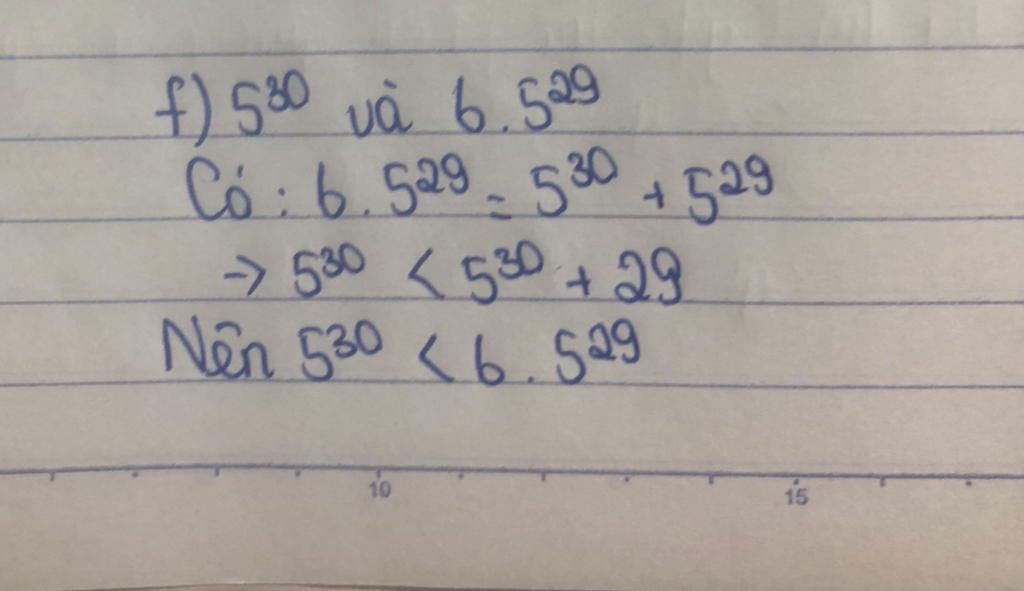 f) 5³⁰ và 6.5²⁹
Có: 6.5²⁹ = 5³⁰ + 5²⁹
→ 5³⁰ < 5³⁰ + 29
Nên 5³⁰ < 6.5²⁹
10 15